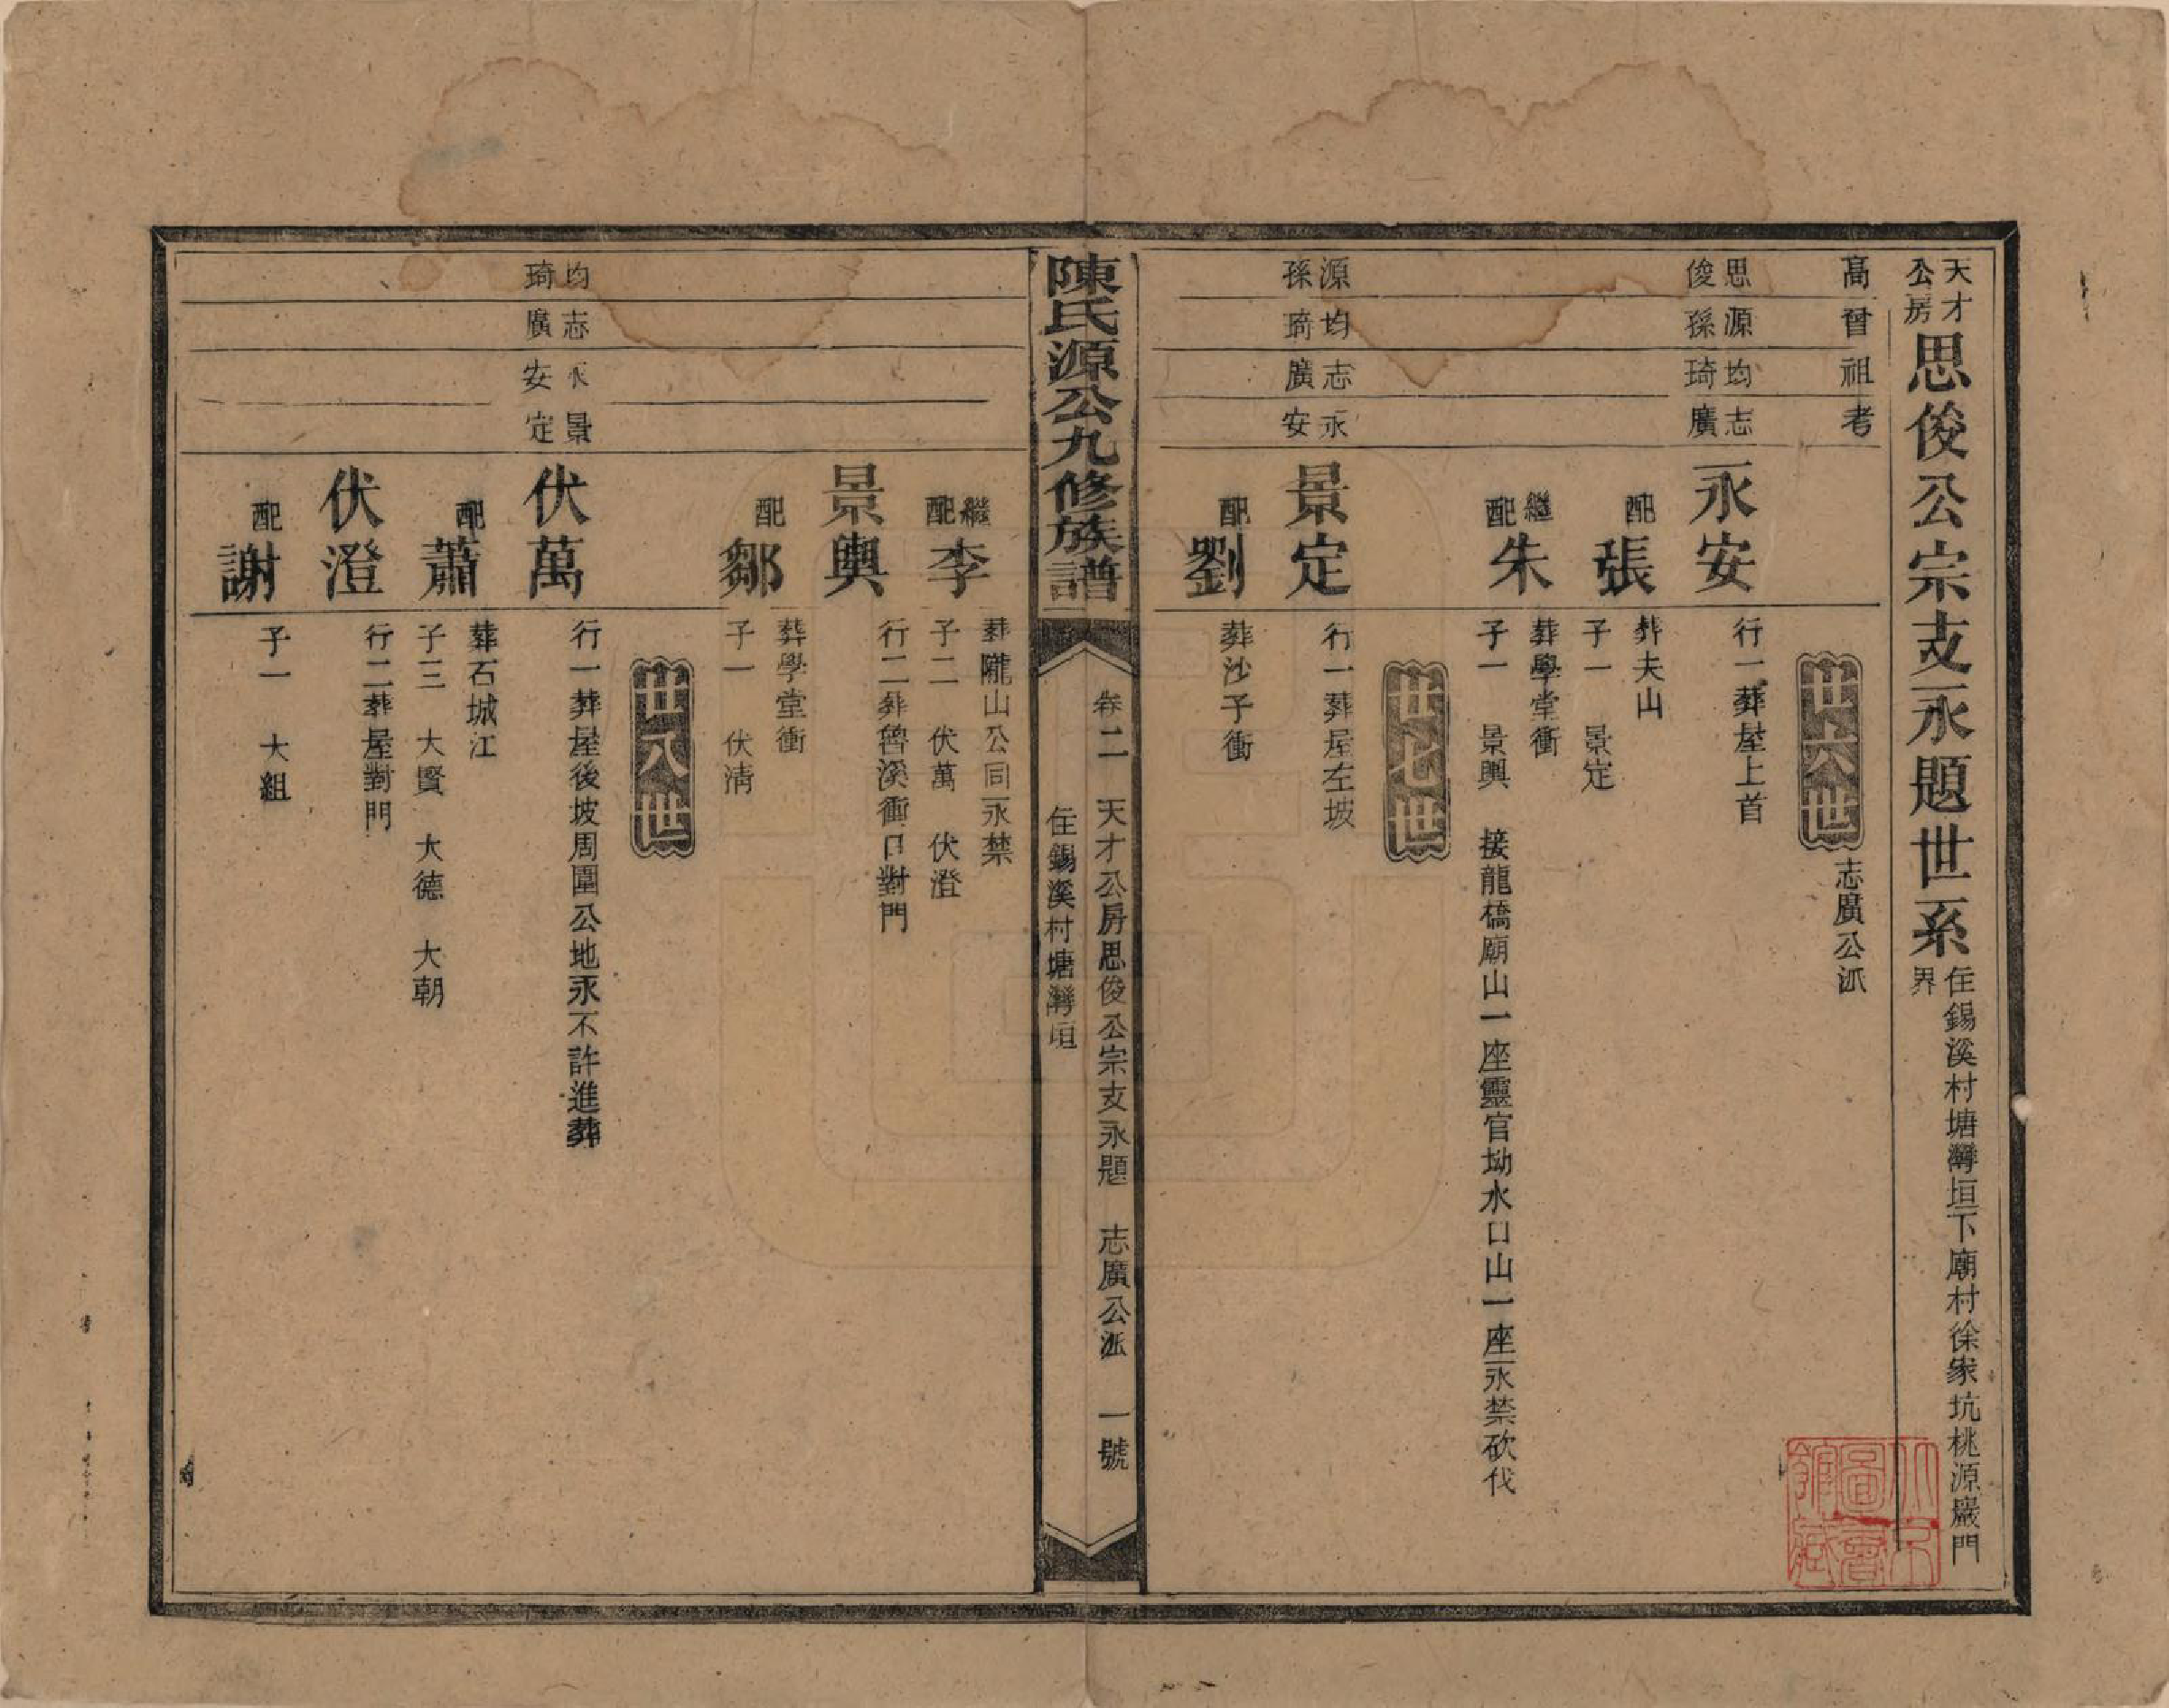 天才公房
思俊公宗支永題世系
住錫溪村塘灣垣下廟村徐家坑桃源巖門
界
高曾祖考
廿六世
志廣公派
思俊
源孫
均琦
志廣
永安
行一葬屋上首
配張
葬夫山
子一 景定
繼配朱
葬學堂衝
子一 景興 接龍橋廟山一座靈官坳水口山一座永禁砍伐
廿七世
源孫
均琦
志廣
永安
景定
行一葬屋左坡
配劉
葬沙子衝
陳氏源公九修族譜
卷二 天才公房思俊公宗支永題 志廣公派 一號
住錫溪村塘灣垣
繼配李
葬隴山公同永禁
子二 伏萬 伏澄
景興
行二葬魯溪衝口對門
配鄒
葬學堂衝
子一 伏清
廿八世
均琦
志廣
永安
景定
伏萬
行一葬屋後坡周圍公地永不許進葬
配蕭
葬石城江
子三 大賢 大德 大朝
伏澄
行二葬屋對門
配謝
子一 大組
北京圖書館藏